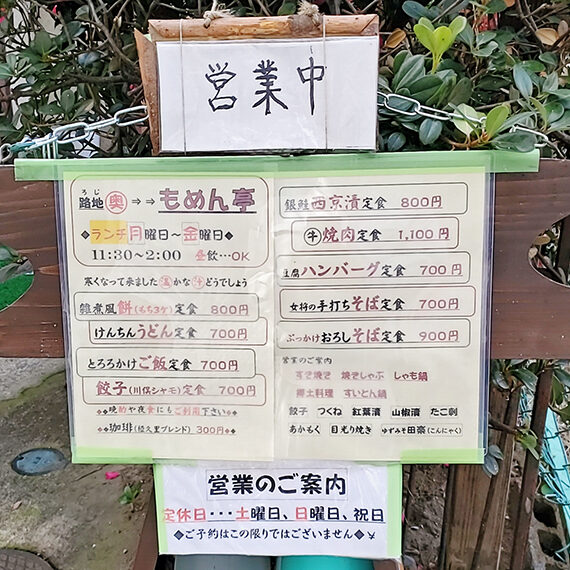 営業中
ろじ
路地 奥 ⇒⇒ もめん亭
◆ランチ月曜日～金曜日◆
11:30～2:00 昼飲…OK
寒くなって来ました 温かな汁どうでしょう
雑煮風餅(もち3ケ)定食 800円
けんちんうどん定食 700円
とろろかけご飯定食 700円
餃子(川俣シャモ)定食 700円
◆◆晩酌や夜食にもご利用下さい◆◆
◆珈琲(椏久里ブレンド) 300円◆
銀鮭西京漬定食 800円
牛焼肉定食 1,100円
豆腐ハンバーグ定食 700円
女将の手打ちそば定食 700円
ぶっかけおろしそば定食 900円
営業のご案内
すき焼き 焼きしゃぶ しゃも鍋
郷土料理 すいとん鍋
餃子 つくね 紅葉漬 山椒漬 たこ刺
あかもく 目光り焼き ゆずみそ田楽(こんにゃく)
営業のご案内
定休日･･･土曜日、日曜日、祝日
◆ご予約はこの限りではございません◆